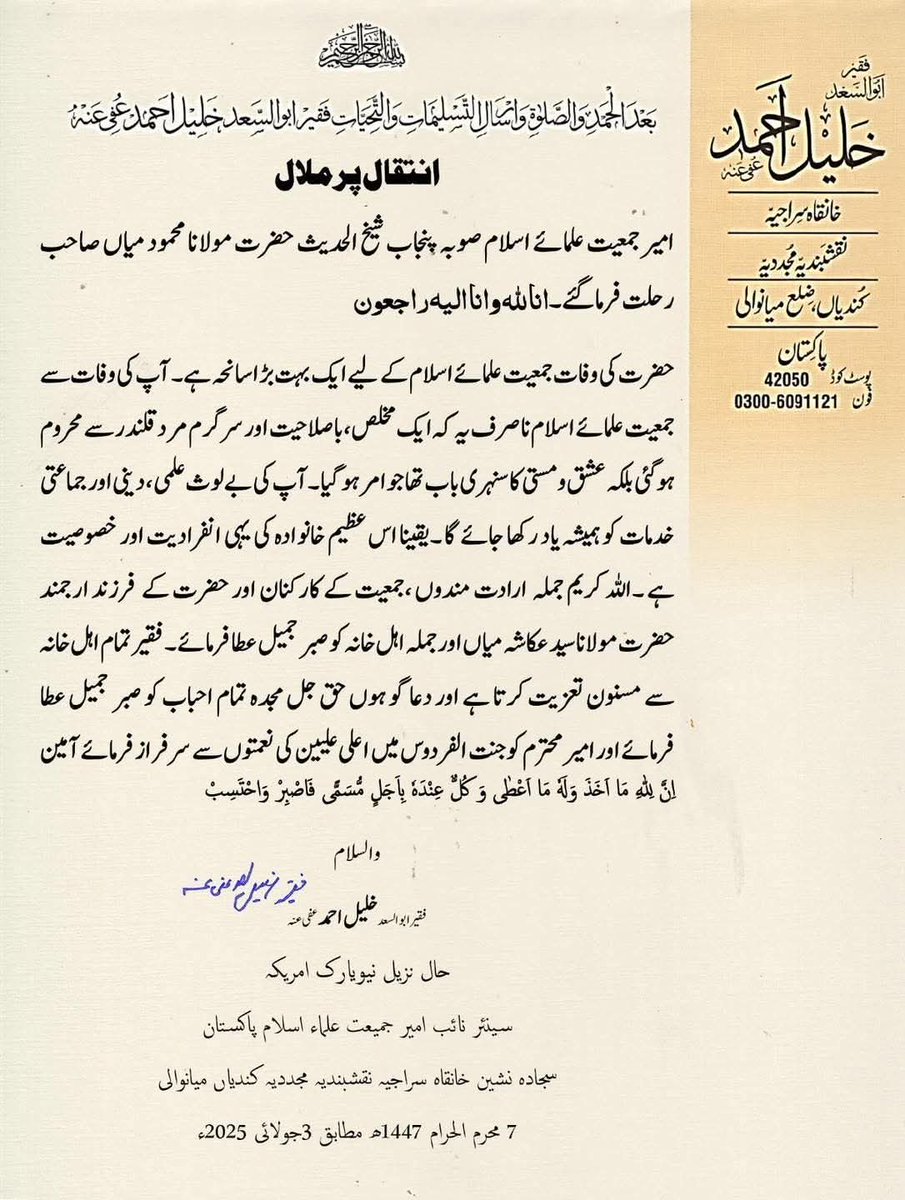 بسم اللہ الرحمن الرحیم
بَعْدَ الْحَمْدِ وَالصَّلٰوۃِ وَاِرْسَالِ التَّسْلِیْمَاتِ وَالتَّحِیَّاتِ فَقِیْر ابو السعد خَلِیْل اَحْمَد عُفِیَ عَنْہُ
انتقال پر ملال
امیر جمعیت علمائے اسلام صوبہ پنجاب شیخ الحدیث حضرت مولانا محمود میاں صاحب
رحلت فرما گئے۔ انا للہ وانا الیہ راجعون
حضرت کی وفات جمعیت علمائے اسلام کے لیے ایک بہت بڑا سانحہ ہے۔ آپ کی وفات سے
جمعیت علمائے اسلام نا صرف یہ کہ ایک مخلص، باصلاحیت اور سرگرم مرد قلندر سے محروم
ہو گئی بلکہ عشق و مستی کا سنہری باب تھا جو امر ہو گیا۔ آپ کی بے لوث علمی، دینی اور جماعتی
خدمات کو ہمیشہ یاد رکھا جائے گا۔ یقینا اس عظیم خانوادہ کی یہی انفرادیت اور خصوصیت
ہے۔ اللہ کریم جملہ ارادت مندوں، جمعیت کے کارکنان اور حضرت کے فرزند ارجمند
حضرت مولانا سید عکاشہ میاں اور جملہ اہل خانہ کو صبر جمیل عطا فرمائے۔ فقیر تمام اہل خانہ
سے مسنون تعزیت کرتا ہے اور دعا گو ہوں حق جل مجدہ تمام احباب کو صبر جمیل عطا
فرمائے اور امیر محترم کو جنت الفردوس میں اعلی علیین کی نعمتوں سے سرفراز فرمائے آمین
اِنَّ لِلّٰہِ مَا اَخَذَ وَلَہٗ مَا اَعْطٰی وَ کُلٌّ عِنْدَہٗ بِاَجَلٍ مُّسَمًّی فَاصْبِرْ وَاحْتَسِبْ
والسلام
فقیر خلیل احمد عفی عنہ
فقیر ابو السعد خلیل احمد عفی عنہ
حال نزیل نیویارک امریکہ
سینئر نائب امیر جمیعت علماء اسلام پاکستان
سجادہ نشین خانقاہ سراجیہ نقشبندیہ مجددیہ کندیاں میانوالی
7 محرم الحرام 1447ھ مطابق 3 جولائی 2025ء
فقیر
ابو السعد
خلیل احمد
عفی عنہ
خانقاہ سراجیہ
نقشبندیہ مجددیہ
کندیاں، ضلع میانوالی
پاکستان
پوسٹ کوڈ 42050
فون 0300-6091121